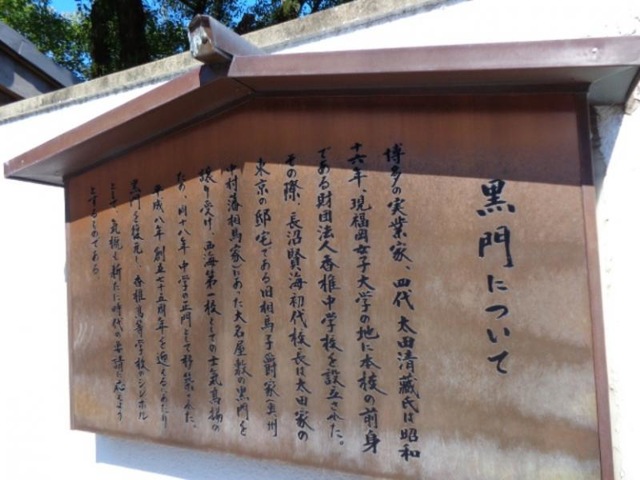 黒門について
博多の実業家、四代 太田清蔵氏は昭和
十六年、現福岡女子大学の地に本校の前身
である財団法人香椎中学校を設立された。
その際、長沼賢海初代校長は太田家の
東京の邸宅である旧相馬子爵家(奥州
中村藩相馬家)にあった大名屋敷の黒門を
譲り受け、西海第一校としての士気高揚の
為、同十八年 中学の正門として移築された。
平成八年 創立七十五周年を迎えるにあたり
黒門を復元し、香椎高等学校のシンボル
として、気概も新たに時代の要請に応えよう
とするものである。